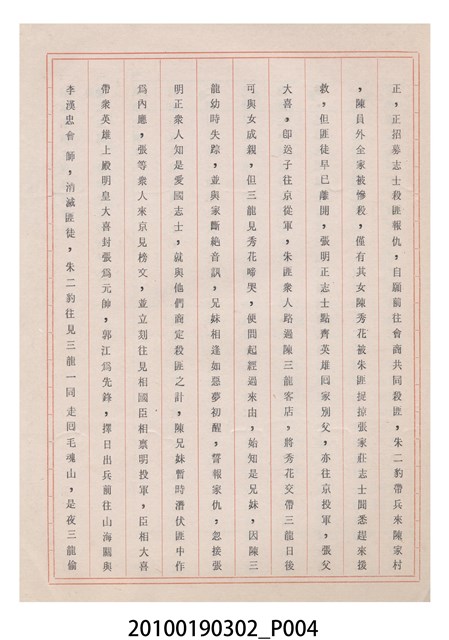 正，正招募志士殺匪報仇，自願前往會商共同殺匪，朱二豹帶兵來陳家村
，陳員外全家被慘殺，僅有其女陳秀花被朱匪捉掠張家莊志士聞悉趕來援
救，但匪徒早已離開，張明正志士點齊英雄回家別父，亦往京投軍，張父
大喜，卽送子往京從軍，朱匪衆人路過陳三龍客店，將秀花交帶三龍日後
可與女成親，但三龍見秀花啼哭，便問起經過來由，始知是兄妹，因陳三
龍幼時失踪，並與家斷絕音訊，兄妹相逢如惡夢初醒，誓報家仇，忽接張
明正衆人知是愛國志士，就與他們商定殺匪之計，陳兄妹暫時潛伏匪中作
爲內應，張等衆人來京見榜文，並立刻往見相國臣相稟明投軍，臣相大喜
帶衆英雄上殿明皇大喜封張爲元帥，郭江爲先鋒，擇日出兵前往山海關與
李漢忠會師，消滅匪徒，朱二豹往見三龍一同走回毛魂山，是夜三龍偷
20100190302_P004